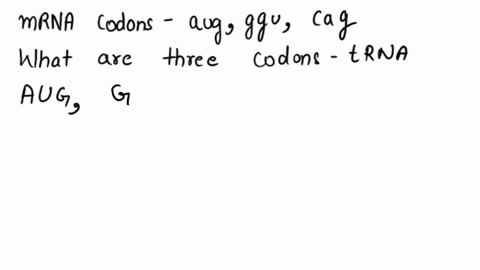 mRNA codons - aug, ggu, cag
What are three codons - tRNA
AUG, G